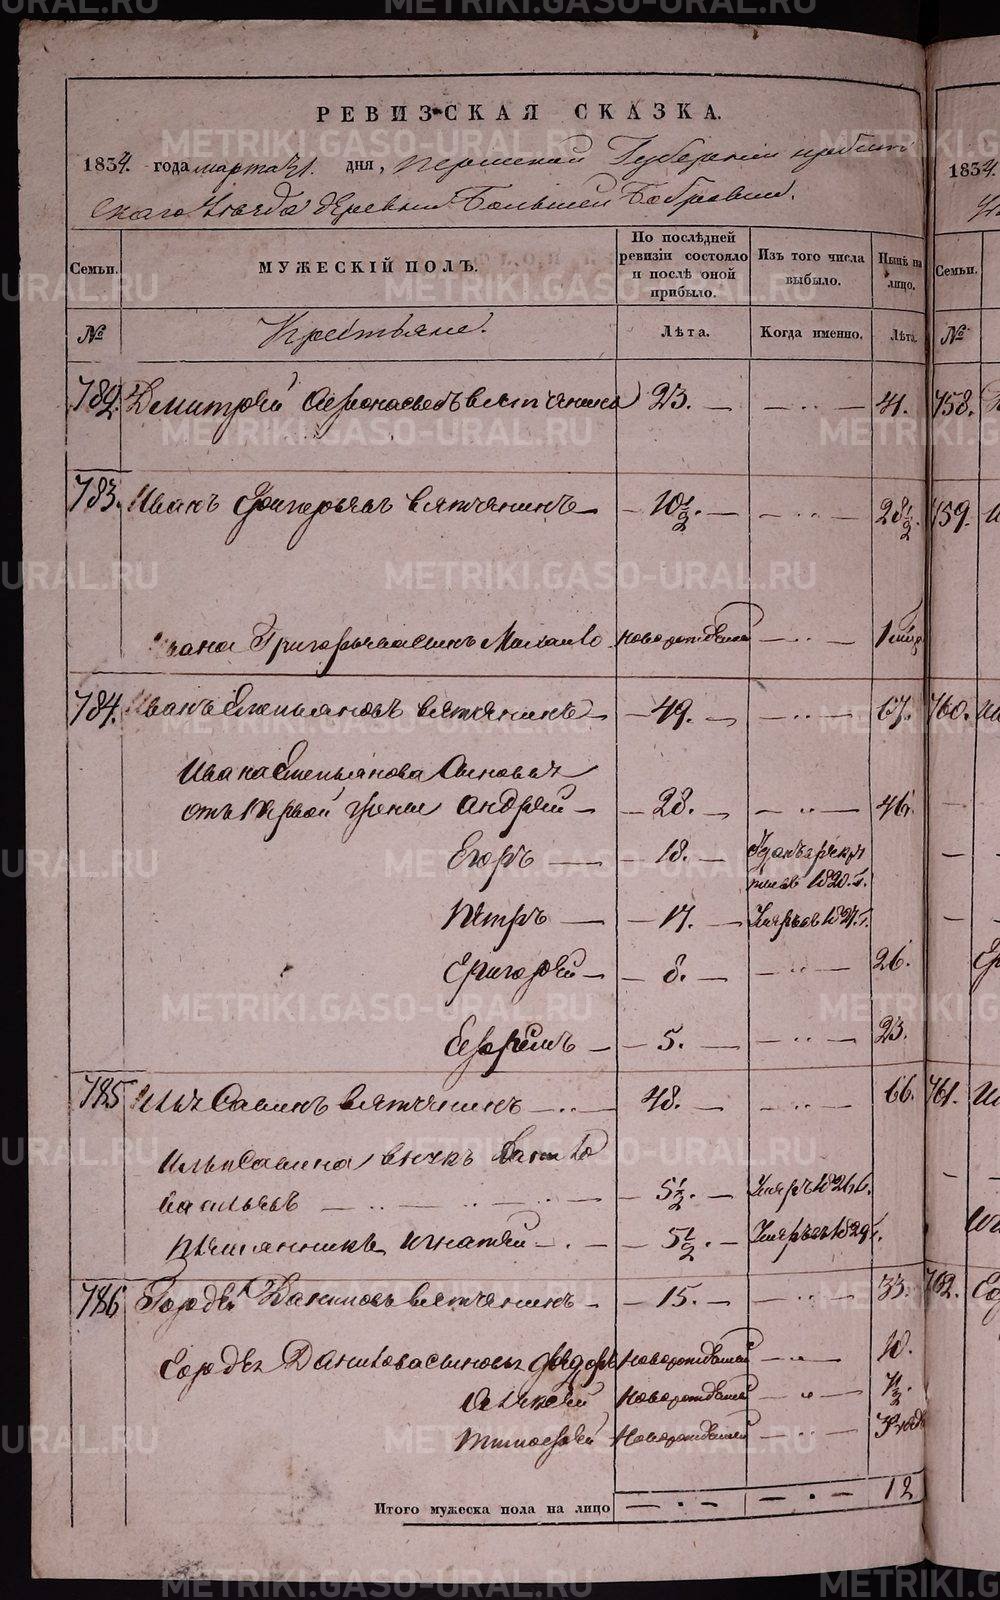 РЕВИЗСКАЯ СКАЗКА.
1834 года марта 21. дня, пермской Губернии ирбит
скаго Уезда деревни Большей Бобровки.
Семьи. МУЖЕСКІЙ ПОЛЪ. По послѣдней ревизіи состояло и послѣ оной прибыло. Изъ того числа выбыло. Нынѣ на лицо.
№ Крестьяне. Лѣта. Когда именно. Лѣта.
782. Дмитрей вятченинъ 23. 41.
783. Иванъ Григорьевъ вятченинъ 10 1/2. 28 1/2.
Ивана Григорьева сынъ Михаило новорожденной
784. Иванъ Емельяновъ вятченинъ 49. 67.
Ивана Емельянова Сыновья
отъ первой жены Андрей 28. 46.
Егоръ 18. 1820. г.
Петръ 17. Умеръ въ 1827. г.
Григорей 8. 26.
Ефремъ 5. 23.
785 Илья Савинъ вятченинъ 48. 66.
Ильи Савина внукъ
Васильевъ 5 1/2. Умеръ 1826 г.
племянникъ Игнатей 5 1/2. Умеръ въ 1829 г.
786 Гордей Даниловъ вятченинъ 15. 33.
Гордея Данилова сыновья Федоръ Новорожденной 10.
Алексей Новорожденной
Тимофей Новорожденной
Итого мужеска пола на лицо 12
1834.
Семьи.
№
758.
759.
760.
761.
762.
METRIKI.GASO-URAL.RU